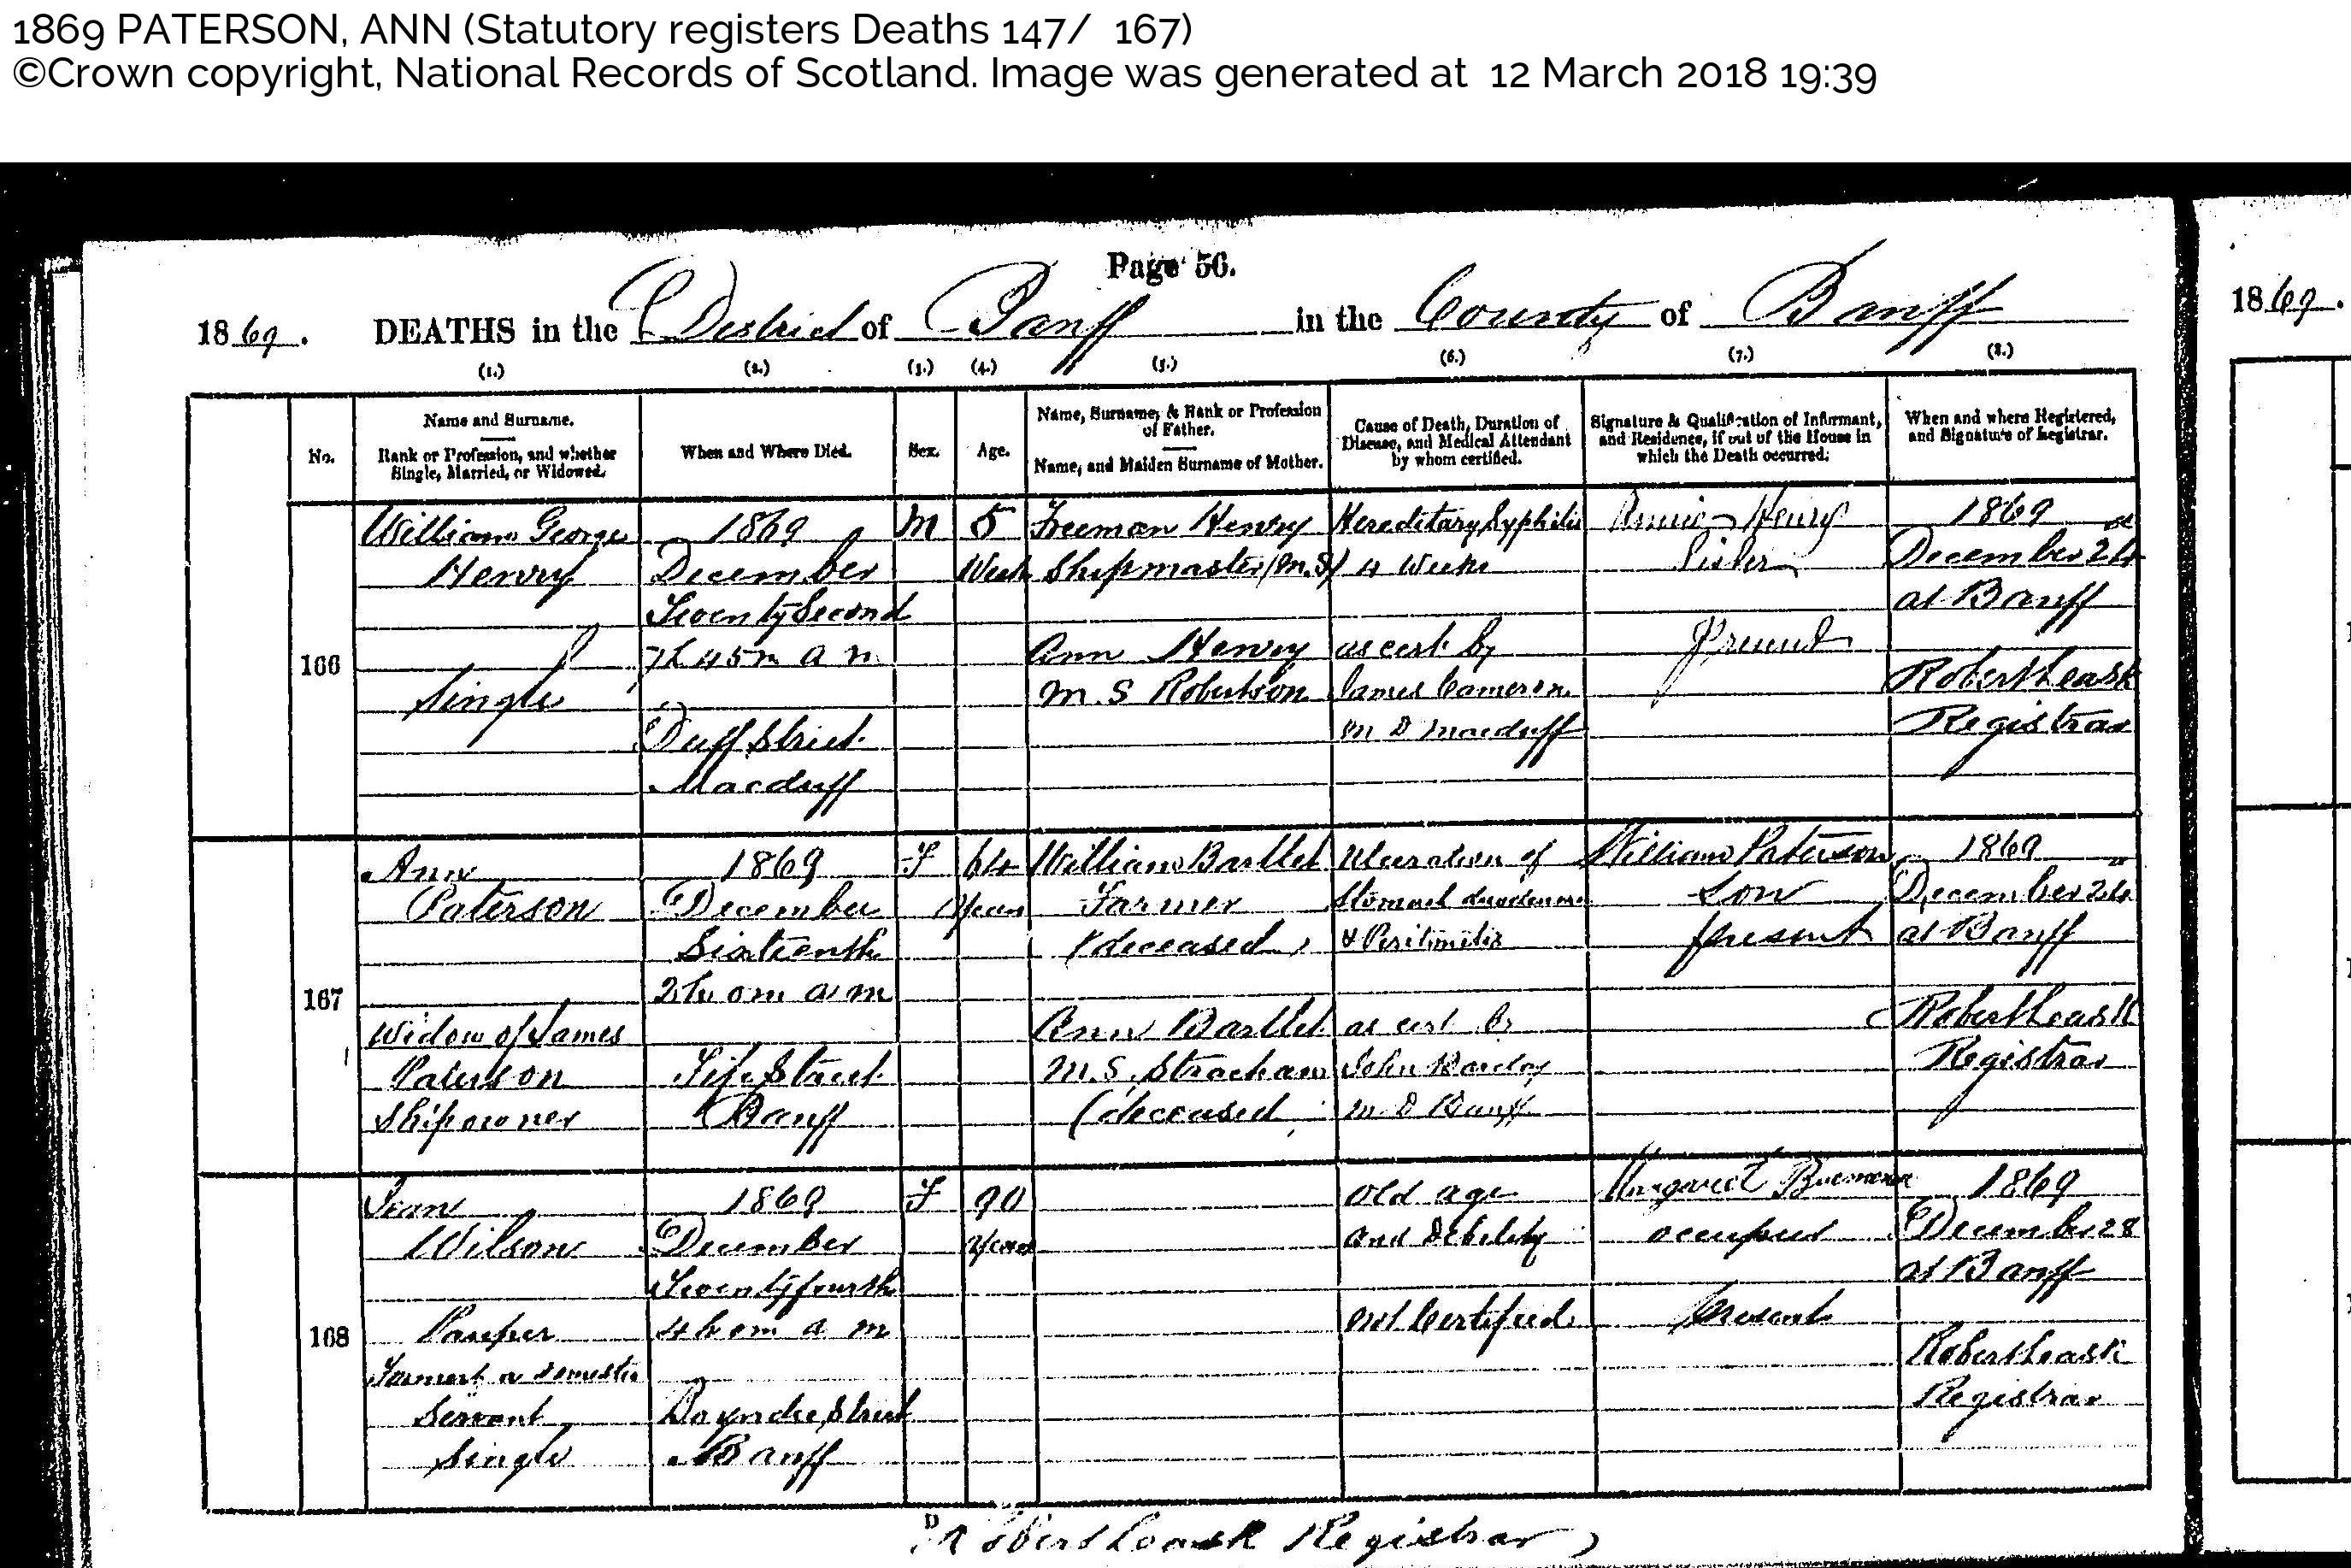 1869 PATERSON, ANN (Statutory registers Deaths 147/ 167)
©Crown copyright, National Records of Scotland. Image was generated at 12 March 2018 19:39
Page 56.
1869. DEATHS in the District of Banff in the County of Banff
1869.
(1.) (2.) (3.) (4.) (5.) (6.) (7.) (8.)
No.
Name and Surname.
Rank or Profession, and whether
Single, Married, or Widowed.
When and Where Died.
Sex.
Age.
Name, Surname, & Rank or Profession
of Father.
Name, and Maiden Surname of Mother.
Cause of Death, Duration of
Disease, and Medical Attendant
by whom certified.
Signature & Qualification of Informant,
and Residence, if out of the House in
which the Death occurred.
When and where Registered,
and Signature of Registrar.
166
William George
Henry
Single
1869
December
Twenty Second
7h 45m a m
Duff Street
Macduff
M
5
Weeks
Freeman Henry
Shipmaster (M.S)
Ann Henry
M.S Robertson
Hereditary Syphilis
4 Weeks
as cert by
James Cameron
M D Macduff
Annie Henry
Sister
Present
1869
December 24
at Banff
Robert Leask
Registrar
167
Ann
Paterson
Widow of James
Paterson
Shipowner
1869
December
Sixteenth
2h 0m a m
Fife Street
Banff
F
64
Years
William Bartlet
Farmer
(deceased)
Ann Bartlet
M.S. Strachan
(deceased)
Ulceration of
Stomach
& Peritonitis
as cert by
John Barclay
M D Banff
William Paterson
Son
present
1869
December 24
at Banff
Robert Leask
Registrar
168
Jean
Wilson
Pauper
Formerly a domestic
Servant
Single
1869
December
Twenty fourth
4h 0m a m
Boyndie Street
Banff
F
90
Years
Old age
and Debility
Not Certified
Margaret
occupier
Present
1869
December 28
at Banff
Robert Leask
Registrar
Robert Leask Registrar